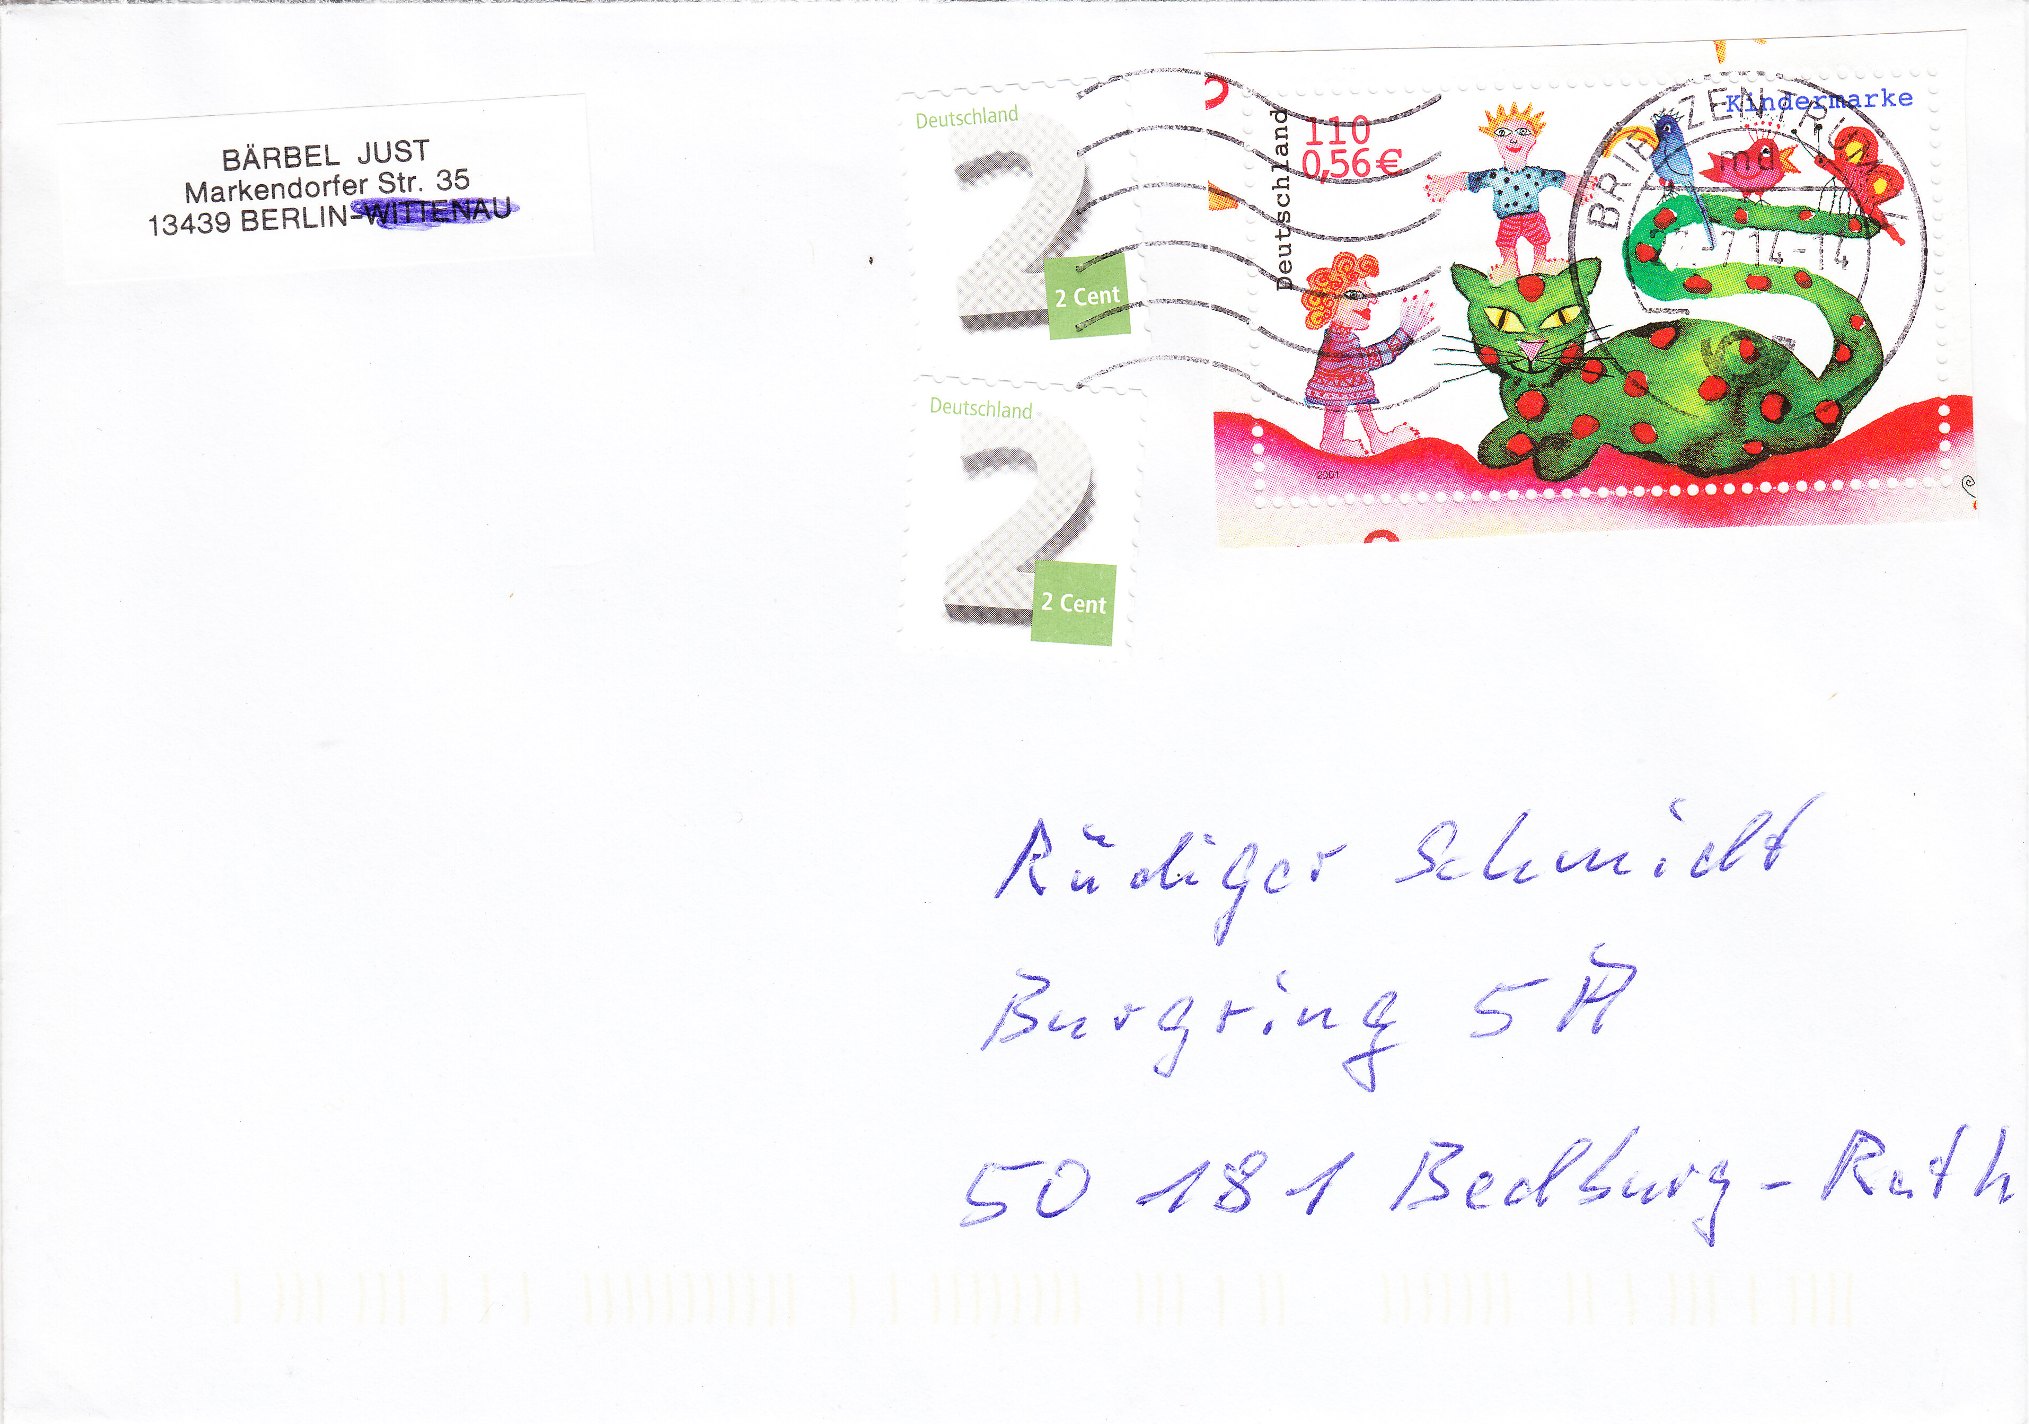 BÄRBEL JUST
Markendorfer Str. 35
13439 BERLIN-WITTENAU
Deutschland
2
2 Cent
Deutschland
2
2 Cent
Deutschland
110
0,56€
Kindermarke
2001
BRIEFZENTRUM
md
-7.14-14
Rüdiger Schmidt
Burgring 5A
50181 Bedburg-Rath